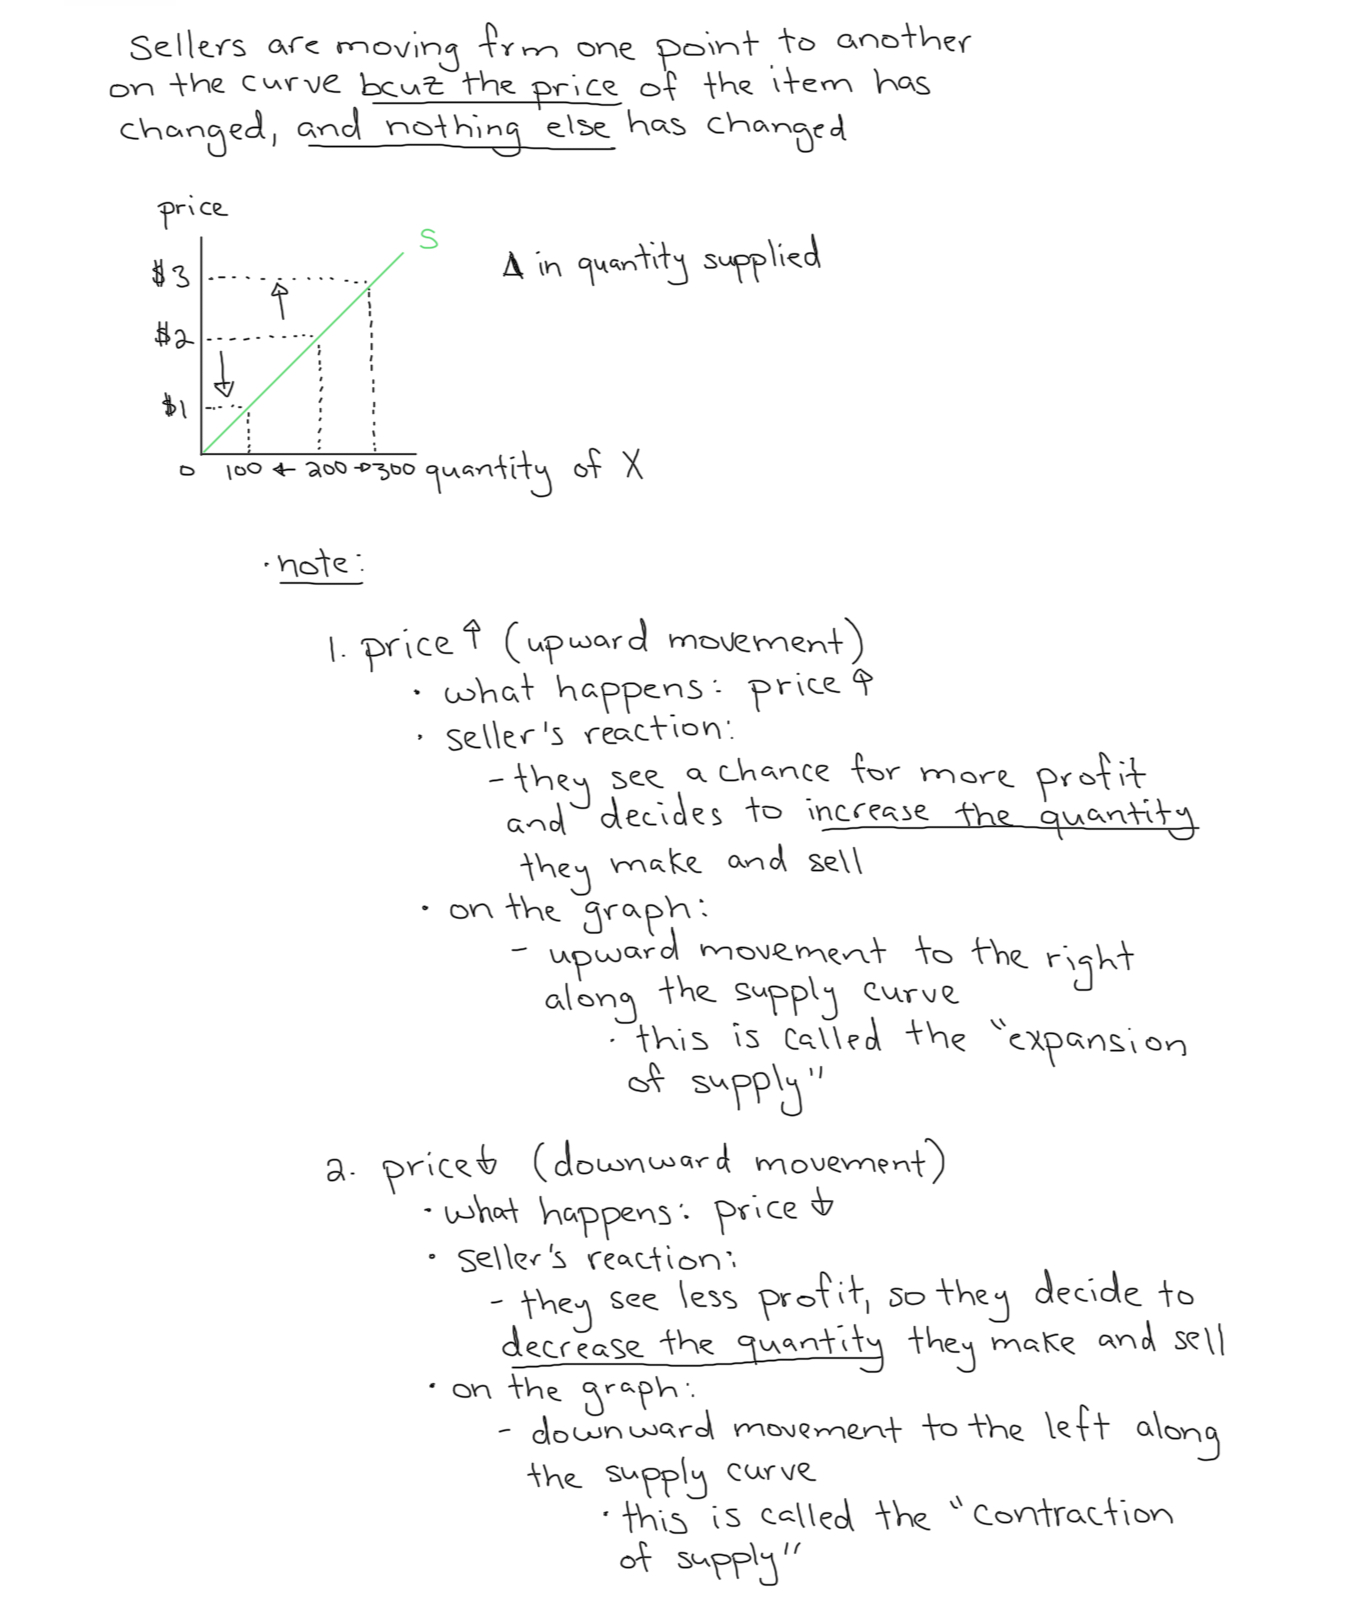 Sellers are moving frm one point to another
on the curve bcuz the price of the item has
changed, and nothing else has changed
price
S
$3
Δ in quantity supplied
$2
$1
0 100 ← 200 → 300 quantity of X
· note:
1. price ↑ (upward movement)
· what happens: price ↑
· seller's reaction:
- they see a chance for more profit
and decides to increase the quantity
they make and sell
· on the graph:
- upward movement to the right
along the supply curve
· this is called the "expansion
of supply"
2. price ↓ (downward movement)
· what happens: price ↓
· seller's reaction:
- they see less profit, so they decide to
decrease the quantity they make and sell
· on the graph:
- downward movement to the left along
the supply curve
· this is called the "contraction
of supply"